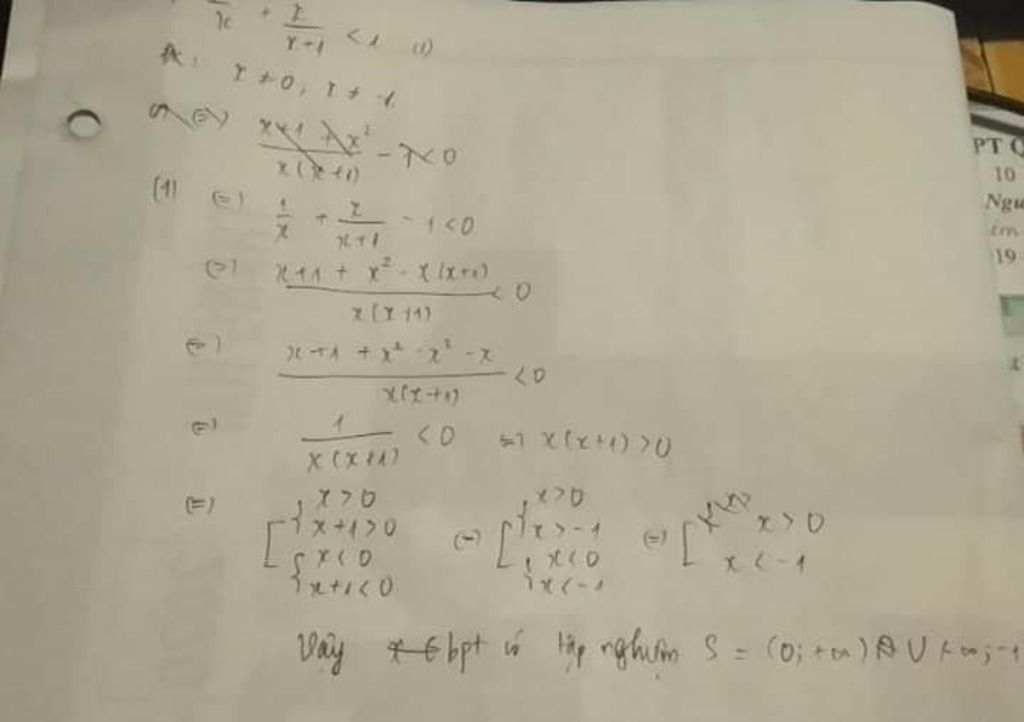 x + x/x+1 < 1 (1)
x ≠ 0, x ≠ -1
(=) x+1 + x² / x(x+1) - 1 < 0
(1) (=) 1/x + x/x+1 - 1 < 0
(=) x+1 + x² - x(x+1) / x(x+1) < 0
(=) x+1 + x² - x² - x / x(x+1) < 0
(=) 1 / x(x+1) < 0 => x(x+1) > 0
(=) [ { x > 0 (=) [ { x > 0 (=) [ x > 0
{ x+1 > 0 { x > -1 x < -1
{ x < 0 { x < 0
{ x+1 < 0 { x < -1
Vậy x ∈ bpt có tập nghiệm S = (0; +∞) ∪ (-∞; -1
PT
10
Ngu
19